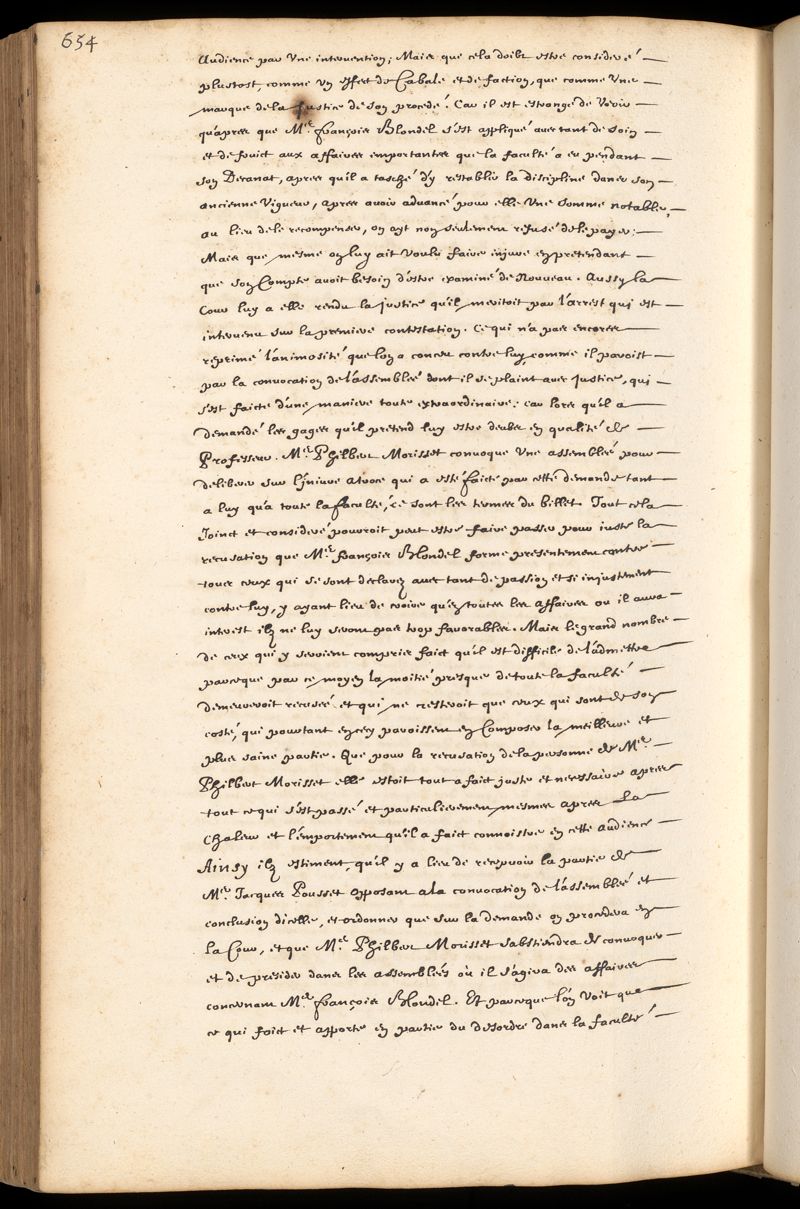 654
Audience par Une intervention; Mais que cela doibt estre consideré
plustost, comme un effect de Cabale et de faction, que comme Une
marque de la Justice de son procedé. Car il est estrange de Veoir
qu'apres que Me. François Blondel s'est appliqué avec tant de soin
et de fruict aux affaires importantes que la faculté a eu pendant
son Decanat, apres qu'il a tasché d'y restablir la discipline dans son
ancienne Vigueur, apres avoir advancé pour elle Une somme notable,
au lieu de le recompenser, on ayt non seulement refusé de le payer;
Mais que mesme on luy ait Voulu faire injure en pretendant
que son Compte avoit besoin d'estre examiné de Nouveau. Aussy la
Cour luy a elle rendu la justice qu'il meritoit par l'arrest qui est
intervenu sur la premiere contestation. Ce qui n'a pas encores
reprimé l'animosité que l'on a conceu contre luy, comme il paroist
par la convocation de l'assemblée dont il se plaint avec justice, qui
s'est faicte d'une maniere toute extraordinaire; car lors qu'il a
demandé les gages qu'il pretend luy estre deubs en qualité de
Professeur. Me. Philbert Morisset convoque Une assemblée pour
deliberer sur l'injure atroce qui a esté faicte par cette demande tant
a luy qu'a toute la faculté, ce sont les termes du billet. Tout cela
Joinct et consideré pourroit peut estre faire passer pour juste la
recusation que Me. François Blondel forme presentement contre
tous ceux qui se sont declarez avec tant de passion et si injustement
contre luy, y ayant lieu de croire qu'en toutes les affaires ou il aura
interest ilz ne luy seront pas trop favorables. Mais le grand nombre
de ceux qui y seroient compris faict qu'il est difficile de l'admettre
parceque par ce moyen la moitié presque de toute la faculté
demeureroit recusée et qu'il ne resteroit que ceux qui sont de son
costé, qui pourtant en cecy paroissent en Composer la meilleure et
plus saine partie. Que pour la recusation de la personne de Me.
Philbert Morisset elle estoit tout a faict juste et necessaire apres
tout ce qui s'est passé et particulierement mesmes apres La
Chaleur et l'emportement qu'il a faict connoistre en cette audience
Ainsy ilz estiment, qu'il y a lieu de recepvoir la partie de
Me. Jacques Pousset opposant a la convocation de l'assemblée et
conclusion d'icelle, et ordonner que sur la demande on procedera en
la Cour, et que Me. Philbert Morisset s'abstiendra de convoquer
et de presider dans les assemblées où il s'agira des affaires
concernant Me. François Blondel. Et parceque l'on Voit que
ce qui faict et apporte en partie du desordre dans la faculté